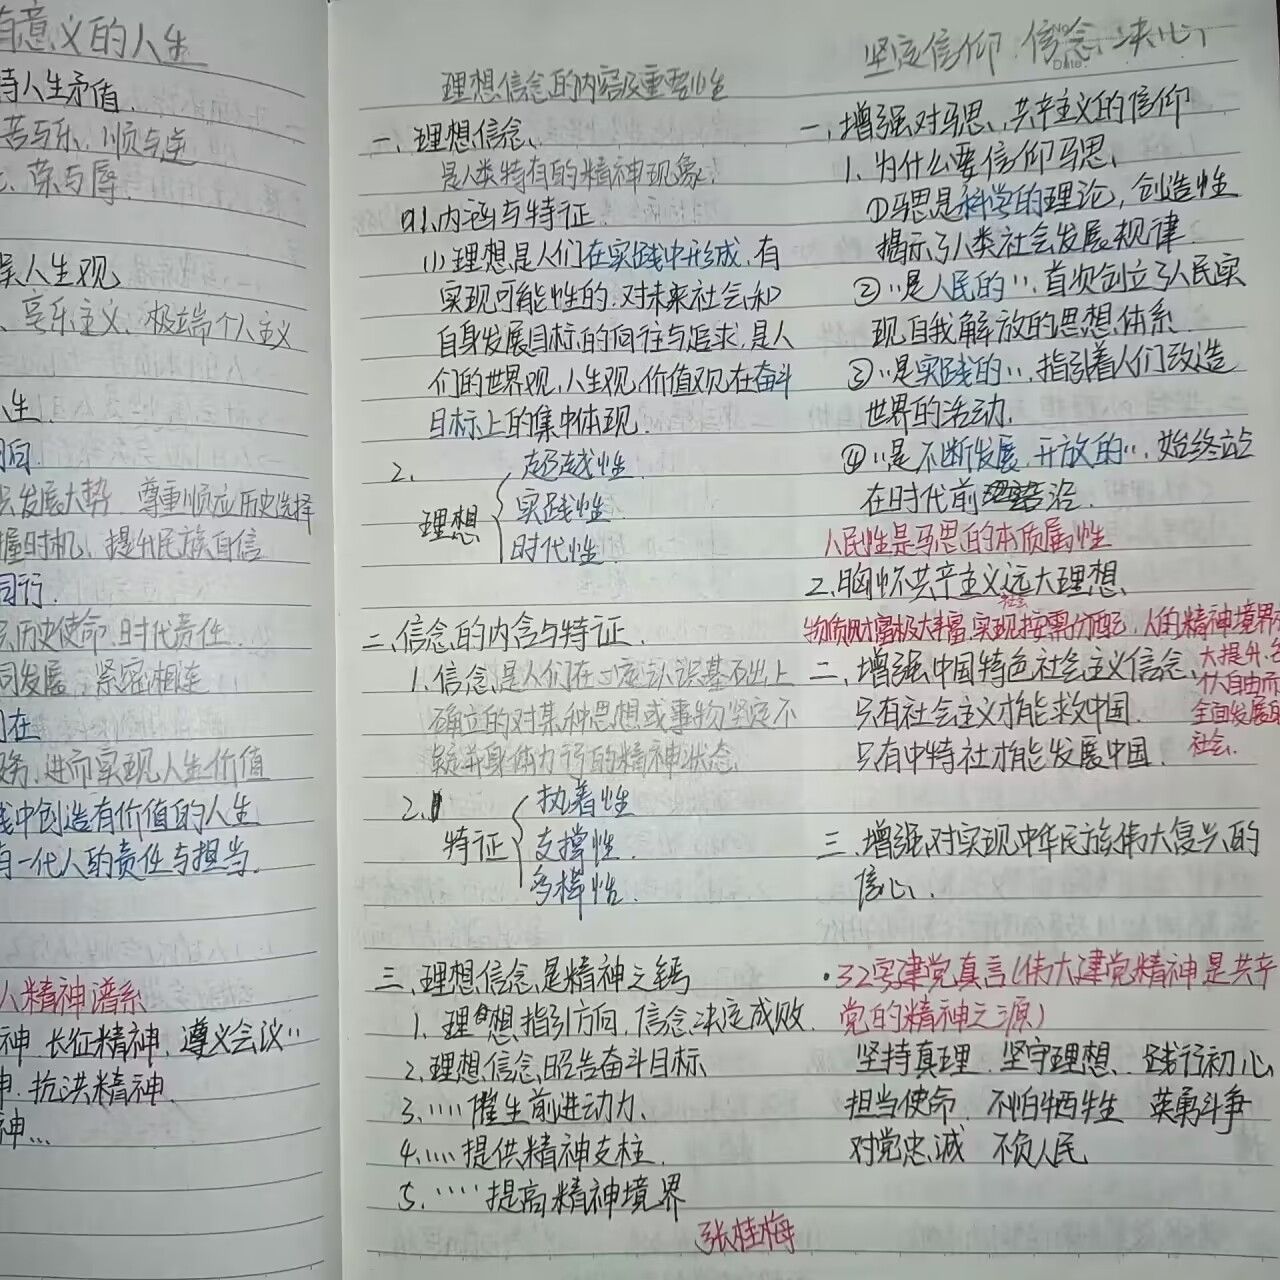 有意义的人生
待人生矛盾.
苦与乐、顺与逆
、荣与辱.
误人生观
、享乐主义、极端个人主义
人生.
同向.
发展大势 尊重顺应历史选择
握时机、提升民族自信
同行.
历史使命.时代责任.
同发展 紧密相连
们在
务,进而实现人生价值
践中创造有价值的人生
有一代人的责任与担当.
人精神谱系
神.长征精神、遵义会议‥
神.抗洪精神.
神...
理想信念的内容及重要性
一、理想信念、
是人类特有的精神现象.
1.内涵与特征
(1)理想是人们在实践中形成,有
实现可能性的.对未来社会和
自身发展目标的向往与追求.是人
们的世界观,人生观,价值观在奋斗
目标上的集中体现.
2.
理想
超越性.
实践性.
时代性.
二、信念的内含与特征.
1.信念是人们在一定认识基础上
确立的对某种思想或事物坚定不
疑并身体力行的精神状态.
2.
特征
执着性
支撑性.
多样性.
三、理想信念是精神之钙
1.理想指引方向,信念决定成败.
2.理想信念昭告奋斗目标
3.‥‥催生前进动力、
4.‥‥提供精神支柱.
5.‥‥‥提高精神境界
张桂梅
坚定信仰、信念、决心
NO
DATE
一、增强对马思、共产主义的信仰
1.为什么要信仰马思、
①马思是科学的理论,创造性
揭示了人类社会发展规律.
②‥是人民的‥,首次创立了人民实
现自我解放的思想体系.
③‥是实践的‥,指引着人们改造
世界的活动.
④‥是不断发展,开放的‥,始终站
在时代前沿.
人民性是马思的本质属性
2.胸怀共产主义远大理想、
社会
物质财富极大丰富,实现按需分配,人的精神境界
大提升,
个人自由而
全面发展的
社会.
二、增强中国特色社会主义信念、
只有社会主义才能救中国.
只有中特社才能发展中国.
三、增强对实现中华民族伟大复兴的
信心、.
·32字建党真言(伟大建党精神是共产
党的精神之源)
坚持真理、坚守理想、践行初心、
担当使命 不怕牺牲 英勇斗争
对党忠诚 不负人民